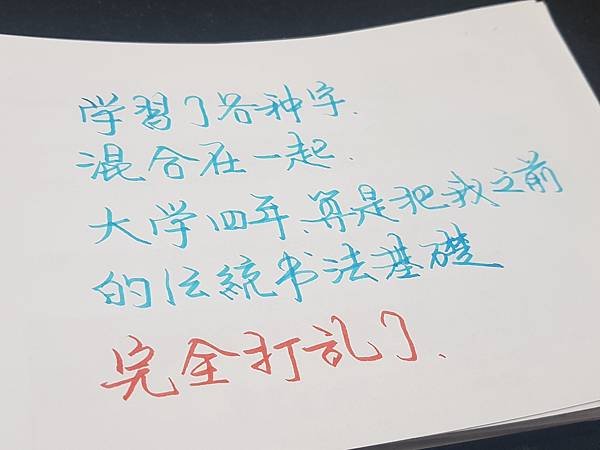 学習了各种字.
混合在一起.
大学四年、算是把我之前
的伝統书法基礎
完全打乱了.